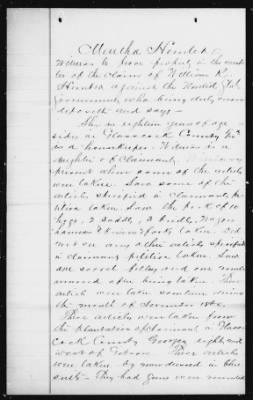 Martha Hinton
Witness to prove property in the matter
of the claim of William R.
Hinton against the United States
Government who being duly sworn
deposeth and says -
She is eighteen years of age
resides in Glasscock County Ga
is a housekeeper. Witness is a
daughter of Claimant.
present when some of the articles
were taken. Saw some of the
articles specified in Claimants petition
taken. Saw the pork of 10
hogs, 2 saddles, 2 bridles, Wagon
harness & knives & forks taken. Did
not see any other articles specified
in claimants petition taken. Saw
one sorrel filley and one mule
removed after being taken. These
articles were taken sometime during
the month of November 1864.
These articles were taken from
the plantation of claimant in Glasscock
County Georgia eight miles
west of Gibson. These articles
were taken by men dressed in blue
suits - They had guns were mounted